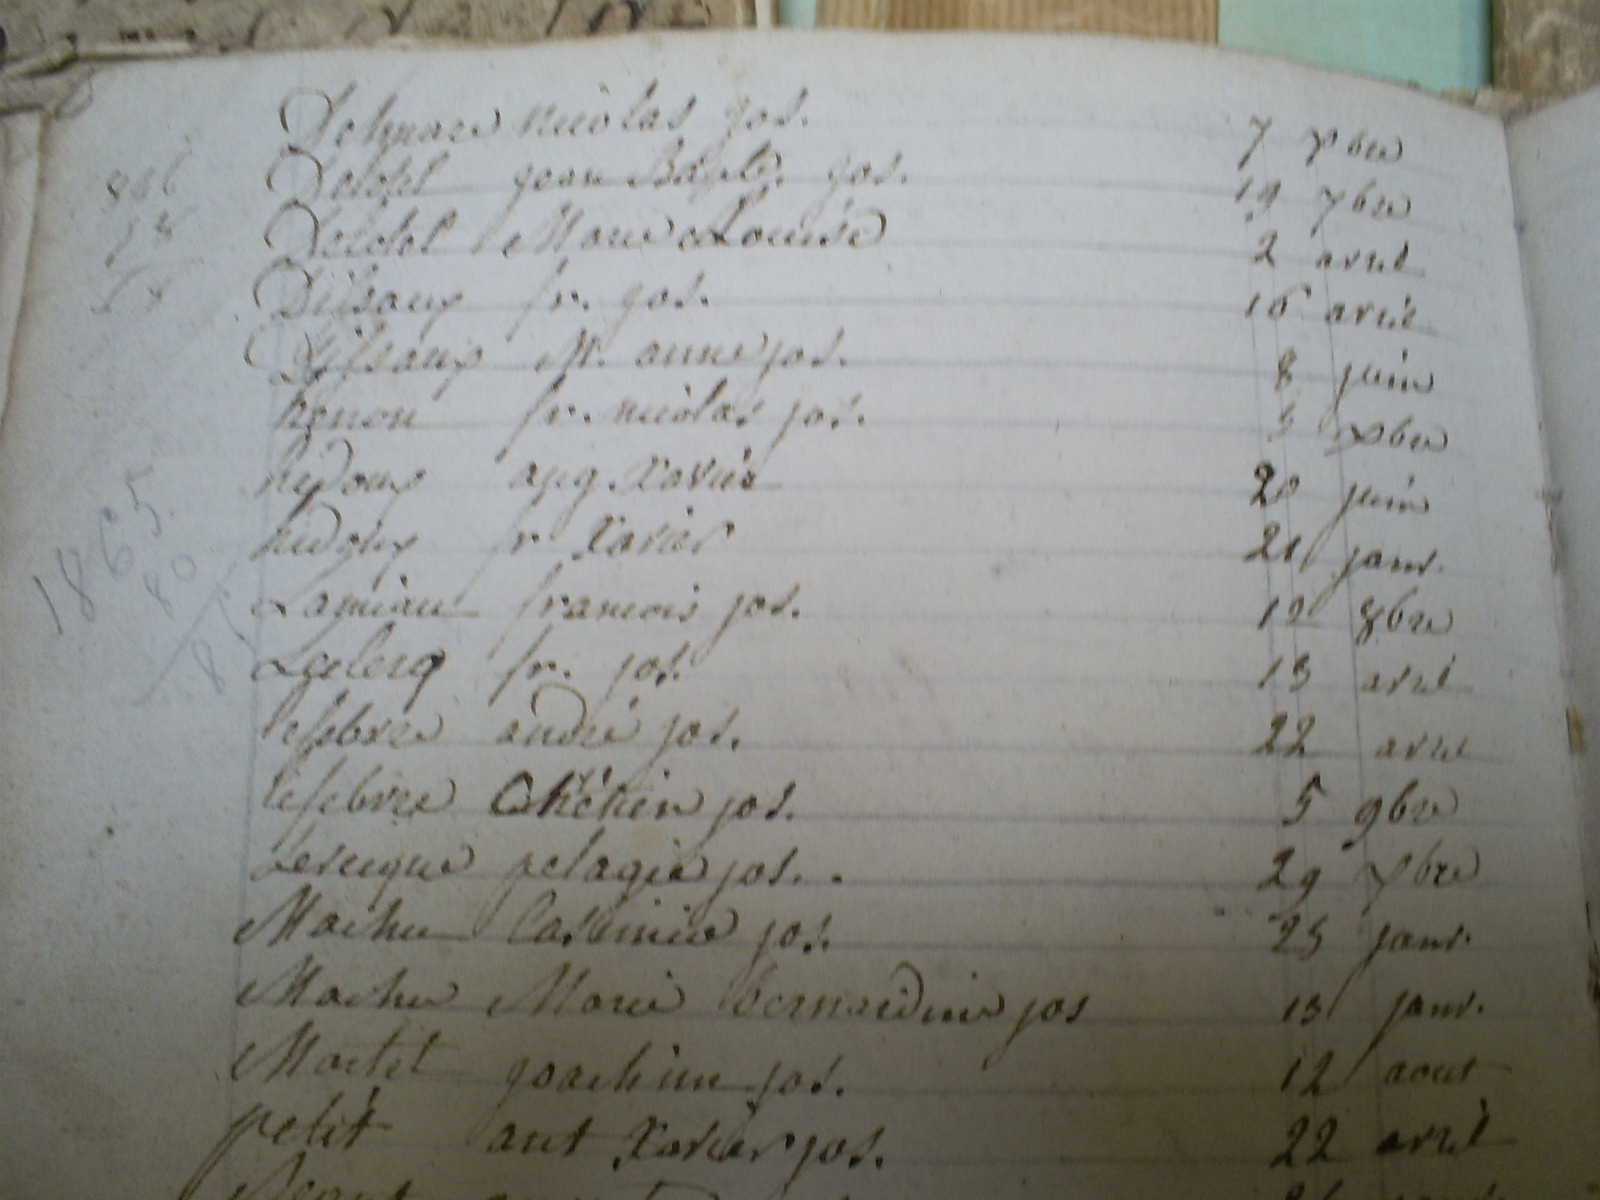 Delmare nicolas jos. 7 xbre
Deldel jean Bapte. jos. 19 7bre
Deldel Marie Louise 2 avril
Dissaux fr. jos. 16 avril
Dissaux M. anne jos. 8 juin
henon fr. nicolas jos. 3 xbre
hidoux aug. Xavier 20 juin
hidoux fr Xavier 21 janv.
Lamiau francois jos. 12 8bre
Leclercq fr. jos. 13 avril
lefebvre andré jos. 22 avril
lefebvre jos. 5 9bre
Levecque pelagie jos. 29 xbre
Machu Casimir jos. 25 janv.
Machu Marie bernardine jos 13 janv.
Martel joachim jos. 12 aout
petit ant Xavier jos. 22 avril
1865
80